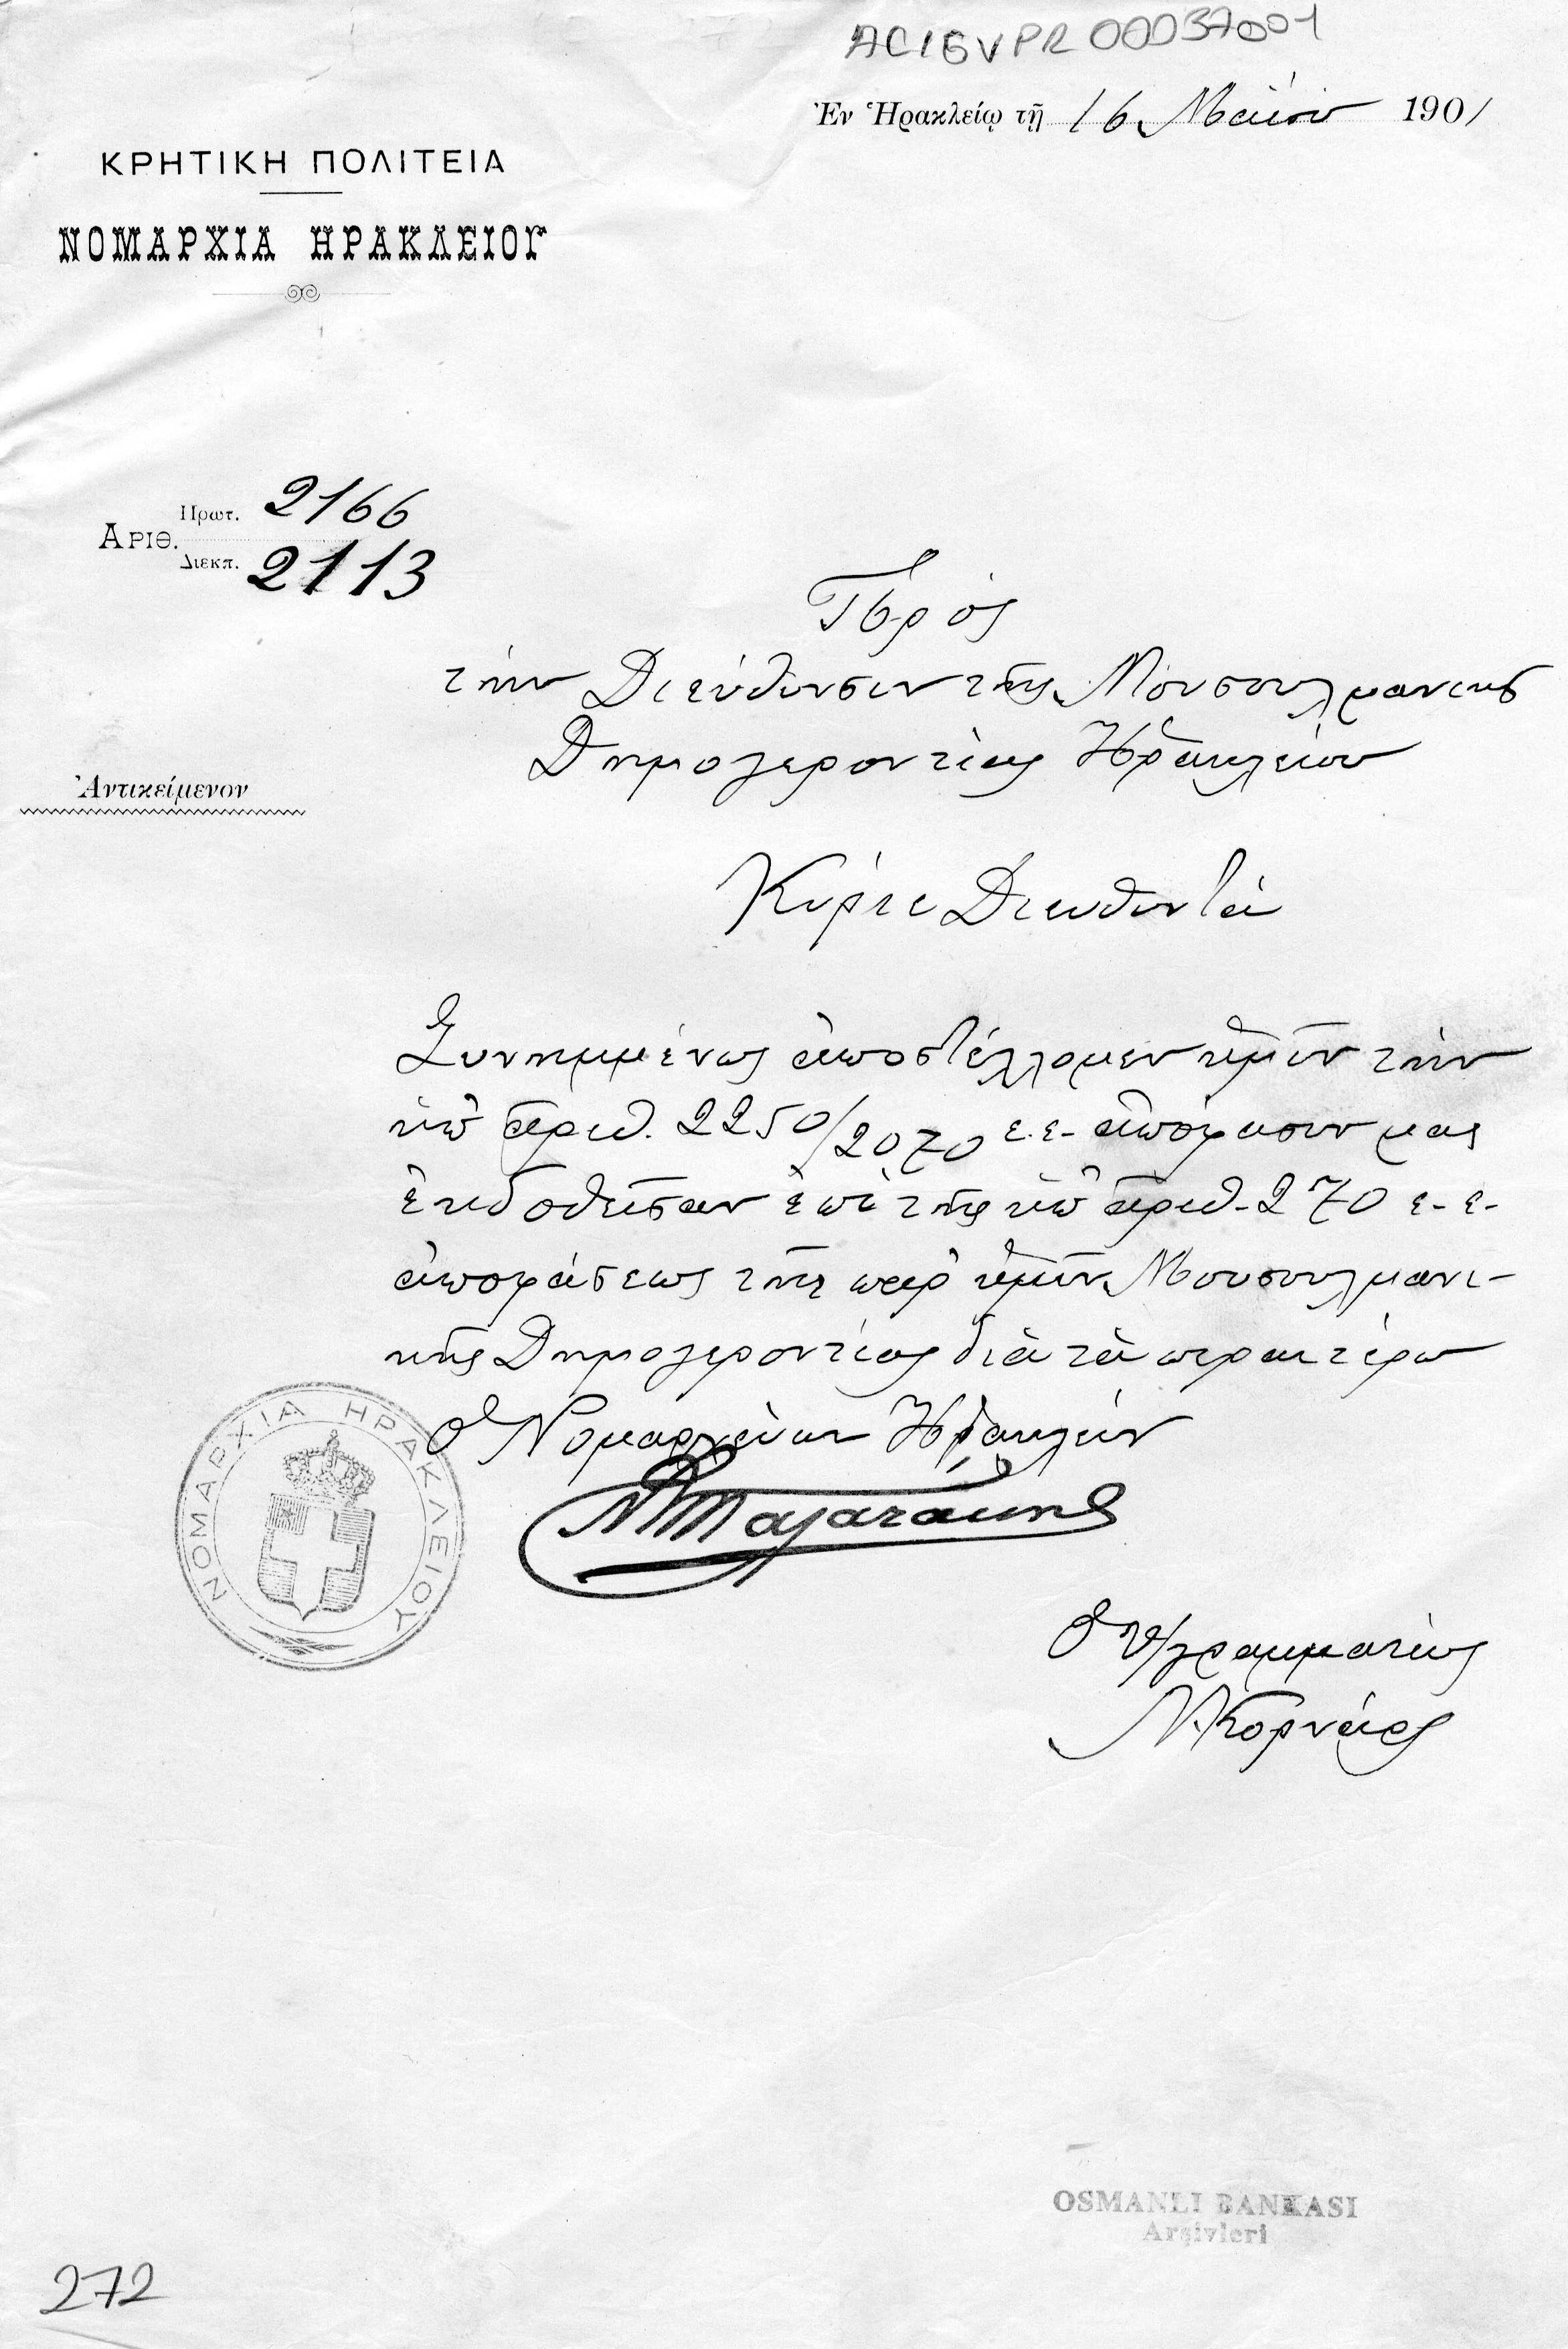 ACIGVPR 00037001
Ἐν Ἡρακλείῳ τῇ 16 Μαΐου 1901
ΚΡΗΤΙΚΗ ΠΟΛΙΤΕΙΑ
ΝΟΜΑΡΧΙΑ ΗΡΑΚΛΕΙΟΥ
ΑΡΙΘ. Πρωτ. 2166
Διεκπ. 2113
Πρὸς
τὴν Διεύθυνσιν τῆς Μουσουλμανικῆς
Δημογεροντίας Ἡρακλείου
Ἀντικείμενον
Κύριε Διευθυντά
Συνημμένως ἀποστέλλομεν ὑμῖν τὴν
ὑπ' ἀριθ. 2250/2070 ἐ.ἔ. ἀπόφασιν μας
ἐκδοθεῖσαν ἐπὶ τῆς ὑπ' ἀριθ. 270 ἐ.ἔ.
ἀποφάσεως τῆς παρ' ὑμῖν Μουσουλμανι-
κῆς Δημογεροντίας διὰ τὰ περαιτέρω
Ὁ Νομαρχεύων Ἡρακλείου
ΝΟΜΑΡΧΙΑ ΗΡΑΚΛΕΙΟΥ
Ὁ γραμματεὺς
Ν. Κορνάρος
OSMANLI BANKASI
Arşivleri
272